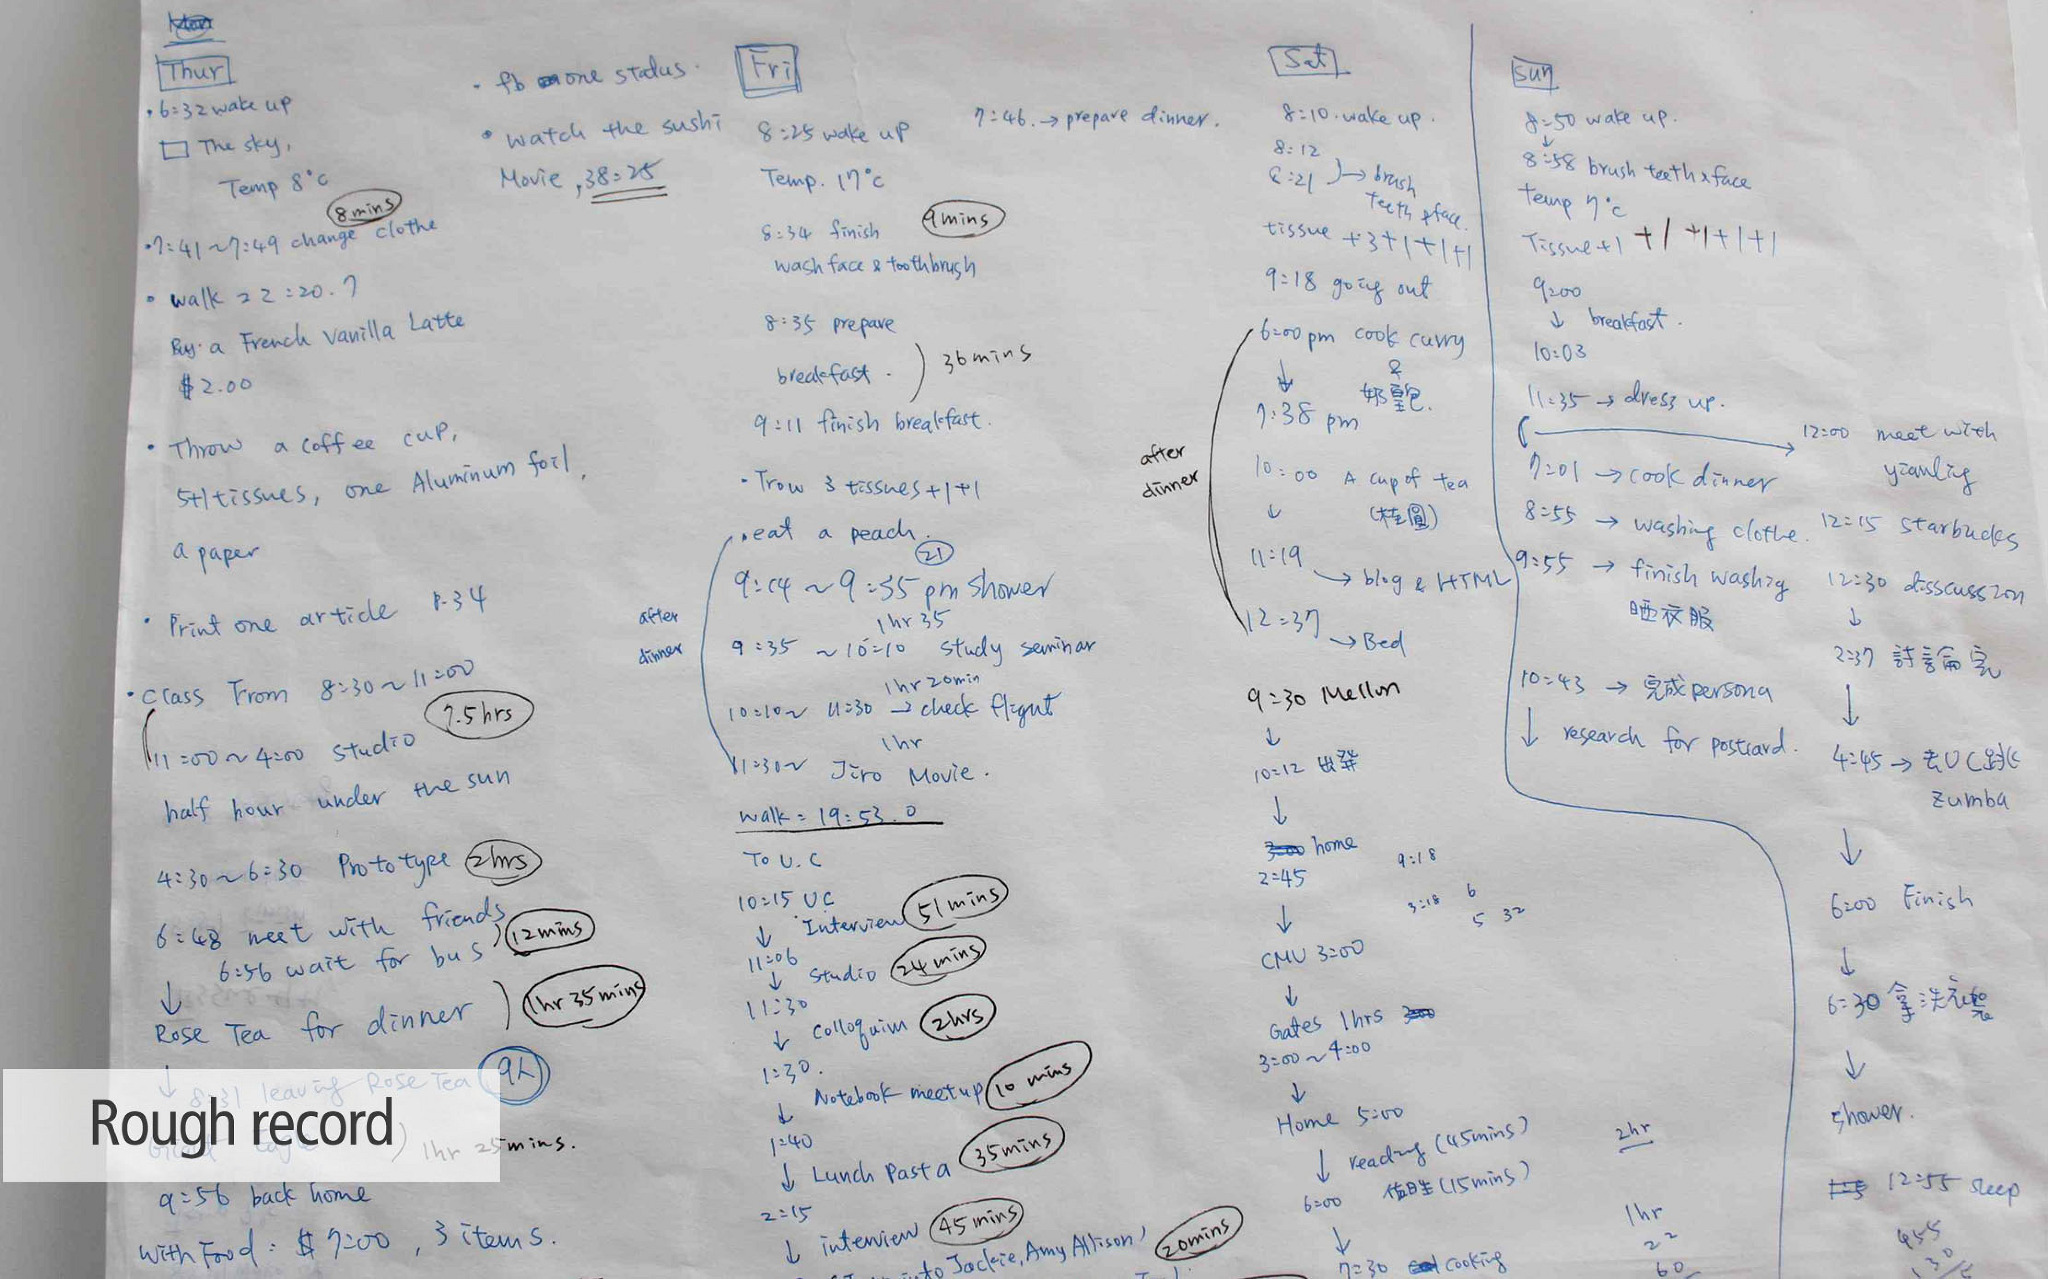 Thur
• 6:32 wake up
The sky,
Temp 8°C
8 mins
• 7:41 ~ 7:49 change clothe
• walk 22:20.7
Buy a French Vanilla Latte
$2.00
• Throw a coffee cup,
5+1 tissues, one Aluminum foil,
a paper
• Print one article P.34
• Class From 8:30 ~ 11:00
7.5hrs
11:00 ~ 4:00 studio
half hour under the sun
4:30 ~ 6:30 Prototype 2hrs
6:48 meet with friends
6:56 wait for bus 12mins
↓
Rose Tea for dinner 1hr 35mins
↓ 8:31 leaving Rose Tea 9人
Giant Eagle 1hr 25mins.
9:56 back home
with Food: $7:00, 3 items.
• fb one status.
• watch the sushi
Movie, 38:25
Fri
8:25 wake up
Temp. 17°C
8:34 finish 9mins
wash face & toothbrush
8:35 prepare
breakfast. 36mins
9:11 finish breakfast.
• Trow 3 tissues+1+1
• eat a peach.
21
after
dinner
9:14 ~ 9:35 pm shower
1hr 35
9:35 ~ 10:10 study seminar
1hr 20min
10:10 ~ 11:30 → check flight
1hr
11:30 ~ Jiro Movie.
walk = 19:53.0
To U.C
10:15 UC
↓ Interview 51mins
11:06
↓ studio 24mins
11:30
↓ colloquim 2hrs
1:30.
↓ Notebook meetup 10 mins
1:40
↓ Lunch Pasta 35mins
2:15
↓ interview 45mins
Jackie, Amy Allison, 20mins
7:46. → prepare dinner.
Sat
8:10. wake up.
8:12
8:21 → brush
Teeth & face.
tissue +3+1+1+1
9:18 going out
after
dinner
6:00 pm cook curry
&
↓ 奶皇包.
7:38 pm
10:00 A cup of tea
↓ (桂圓)
11:19
→ blog & HTML
12:37
→ Bed
9:30 Mellon
↓
10:12 出發
↓
home
2:45
9:18
3:18 6
5 32
↓
CMU 3:00
↓
Gates 1hrs
3:00 ~ 4:00
↓
Home 5:00
↓ reading (45mins)
6:00 (15mins)
↓
7:30 cooking
2hr
1hr
22
60
Sun
8:50 wake up.
↓
8:58 brush teeth & face
Temp 7°C
Tissue+1 +1 +1+1+1
9:00
↓ breakfast.
10:03
11:35 → dress up.
7:01 → cook dinner
8:55 → washing clothe.
9:55 → finish washing
晒衣服
10:43 → 完成persona
↓ research for postcard.
12:00 meet with
yianling
12:15 starbucks
12:30 disscussion
↓
2:37 討論完
↓
4:45 → 去UC跳
Zumba
↓
6:00 Finish
↓
6:30 拿洗衣
↓
shower.
12:55 sleep
455
Rough record